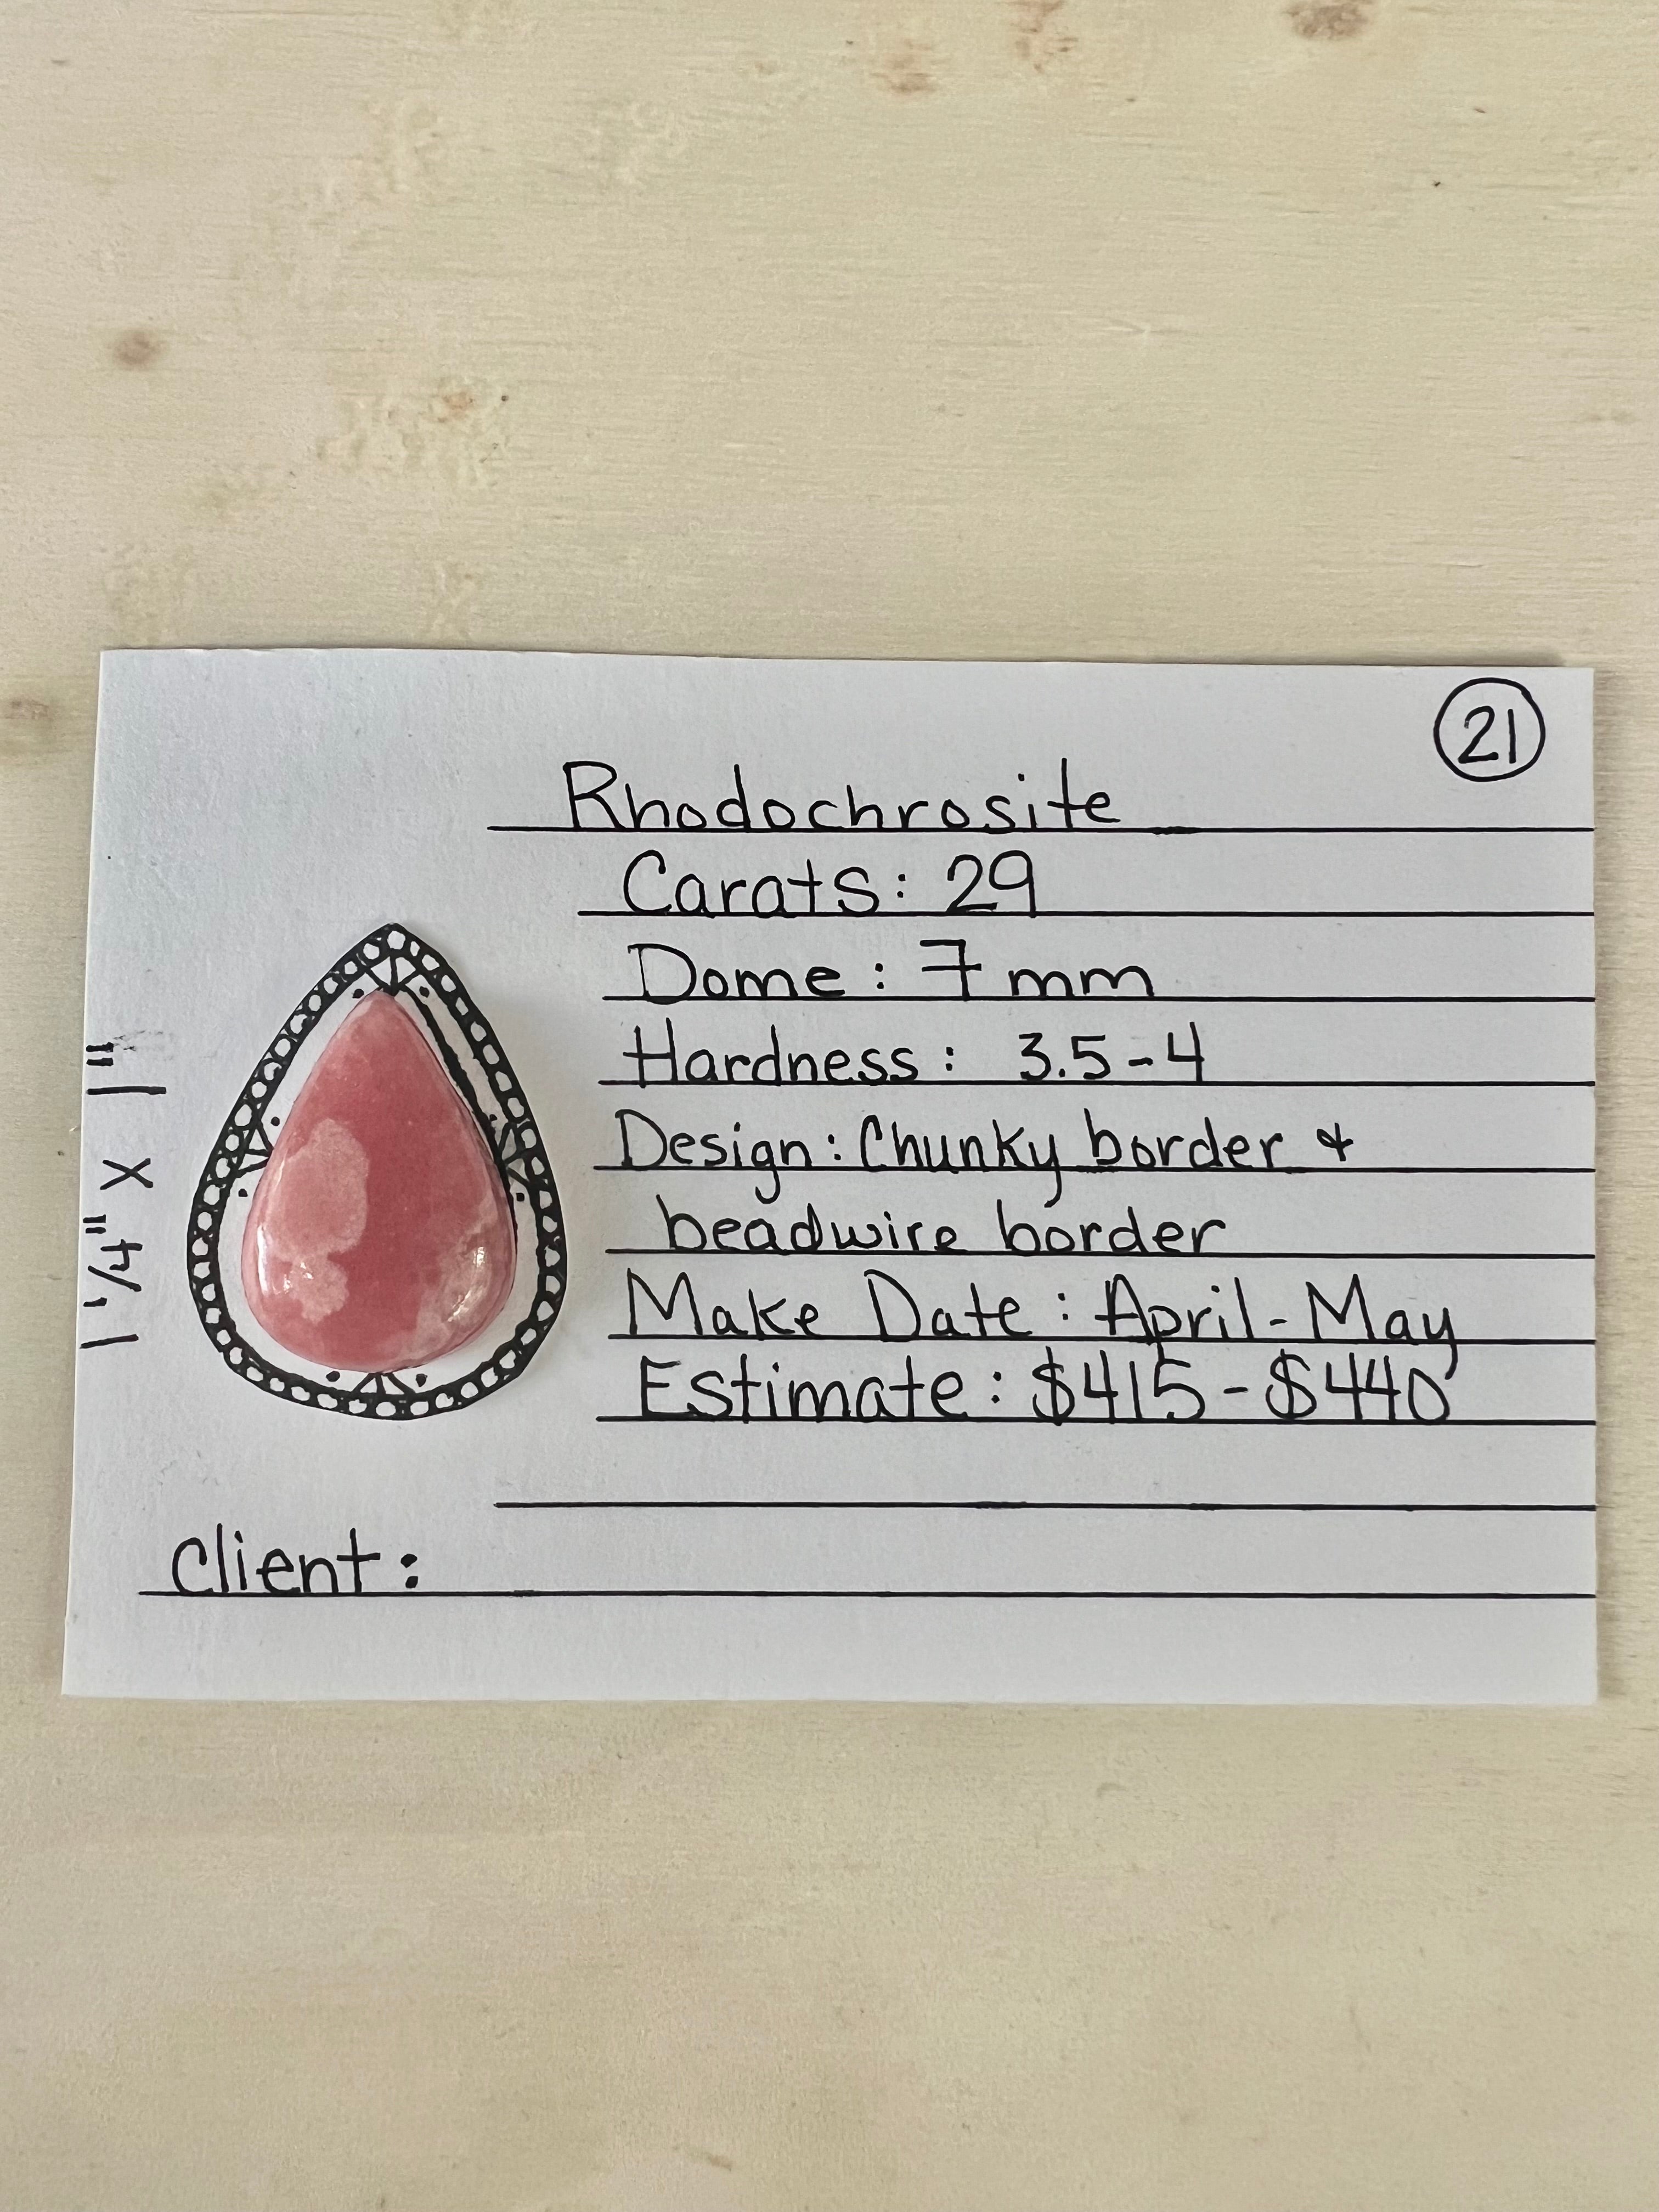 21
Rhodochrosite
Carats: 29
Dome: 7mm
Hardness: 3.5-4
Design: Chunky border &
beadwire border
Make Date: April-May
Estimate: $415-$440
Client:
1 1/4" X 1"